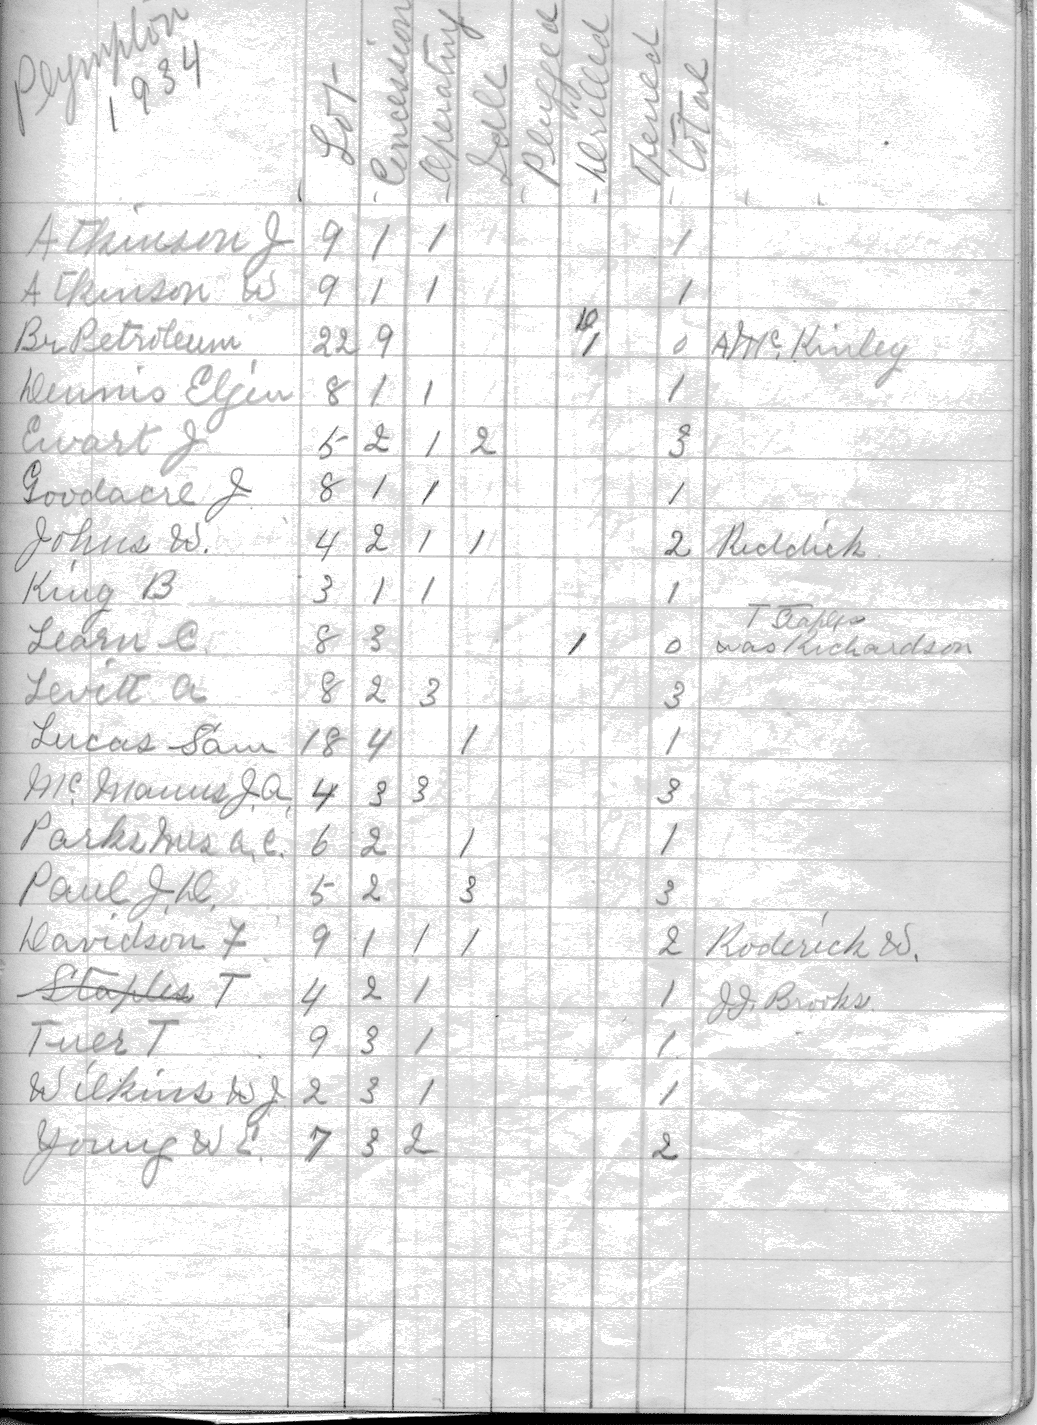 Plympton
1934
Lot Concession Operating Idle Plugged Drilled Opened Total
Atkinson J 9 1 1 1
Atkinson W 9 1 1 1
Br Petroleum 22 9 1 0 A McKinley
Dennis Elgin 8 1 1 1
Ewart J 5 2 1 2 3
Goodacre J 8 1 1 1
Johns W. 4 2 1 1 2 Riddick
King B 3 1 1 1
T Staples
Learn C. 8 3 1 0 was Richardson
Levitt A 8 2 3 3
Lucas Sam 18 4 1 1
McManus J.A. 4 3 3 3
Parks Mrs A.C. 6 2 1 1
Paul J.D. 5 2 3 3
Davidson F 9 1 1 1 2 Roderick W.
Staples T 4 2 1 1 J.J. Brooks.
Tuer T 9 3 1 1
Wilkins W J 2 3 1 1
Young W E. 7 3 2 2